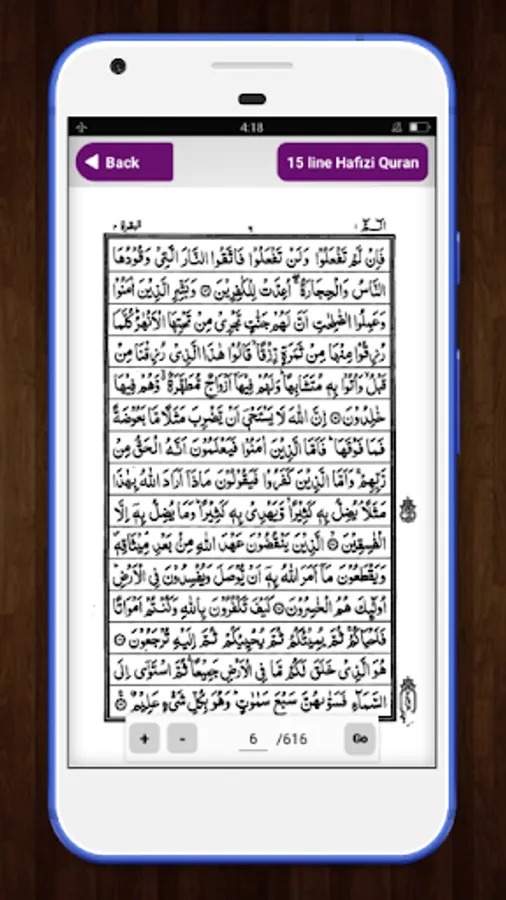 4:18
Back
15 line Hafizi Quran
البقرة ٢
٦
الٓمّٓ ١
فَاِنْ لَّمْ تَفْعَلُوْا وَلَنْ تَفْعَلُوْا فَاتَّقُوا النَّارَ الَّتِیْ وَقُوْدُهَا
النَّاسُ وَالْحِجَارَةُ ۖۚ اُعِدَّتْ لِلْكٰفِرِیْنَ ۝ وَبَشِّرِ الَّذِیْنَ اٰمَنُوْا
وَعَمِلُوا الصّٰلِحٰتِ اَنَّ لَهُمْ جَنّٰتٍ تَجْرِیْ مِنْ تَحْتِهَا الْاَنْهٰرُ ؕ كُلَّمَا
رُزِقُوْا مِنْهَا مِنْ ثَمَرَةٍ رِّزْقًا ۙ قَالُوْا هٰذَا الَّذِیْ رُزِقْنَا مِنْ
قَبْلُ ۙ وَاُتُوْا بِهٖ مُتَشَابِهًا ؕ وَلَهُمْ فِیْهَاۤ اَزْوَاجٌ مُّطَهَّرَةٌ ۙۗ وَّهُمْ فِیْهَا
خٰلِدُوْنَ ۝ اِنَّ اللّٰهَ لَا یَسْتَحْیٖۤ اَنْ یَّضْرِبَ مَثَلًا مَّا بَعُوْضَةً
فَمَا فَوْقَهَا ؕ فَاَمَّا الَّذِیْنَ اٰمَنُوْا فَیَعْلَمُوْنَ اَنَّهُ الْحَقُّ مِنْ
رَّبِّهِمْ ۚ وَاَمَّا الَّذِیْنَ كَفَرُوْا فَیَقُوْلُوْنَ مَاذَاۤ اَرَادَ اللّٰهُ بِهٰذَا
مَثَلًا ۘ یُضِلُّ بِهٖ كَثِیْرًا ۙ وَّیَهْدِیْ بِهٖ كَثِیْرًا ؕ وَمَا یُضِلُّ بِهٖۤ اِلَّا
الْفٰسِقِیْنَ ۝ الَّذِیْنَ یَنْقُضُوْنَ عَهْدَ اللّٰهِ مِنْۢ بَعْدِ مِیْثَاقِهٖ ۪
وَیَقْطَعُوْنَ مَاۤ اَمَرَ اللّٰهُ بِهٖۤ اَنْ یُّوْصَلَ وَیُفْسِدُوْنَ فِی الْاَرْضِ ؕ
اُولٰٓىِٕكَ هُمُ الْخٰسِرُوْنَ ۝ كَیْفَ تَكْفُرُوْنَ بِاللّٰهِ وَكُنْتُمْ اَمْوَاتًا
فَاَحْیَاكُمْ ۚ ثُمَّ یُمِیْتُكُمْ ثُمَّ یُحْیِیْكُمْ ثُمَّ اِلَیْهِ تُرْجَعُوْنَ ۝
هُوَ الَّذِیْ خَلَقَ لَكُمْ مَّا فِی الْاَرْضِ جَمِیْعًا ۗ ثُمَّ اسْتَوٰۤی اِلَی
السَّمَآءِ فَسَوّٰىهُنَّ سَبْعَ سَمٰوٰتٍ ؕ وَهُوَ بِكُلِّ شَیْءٍ عَلِیْمٌ ۝
+ - 6 /616 Go